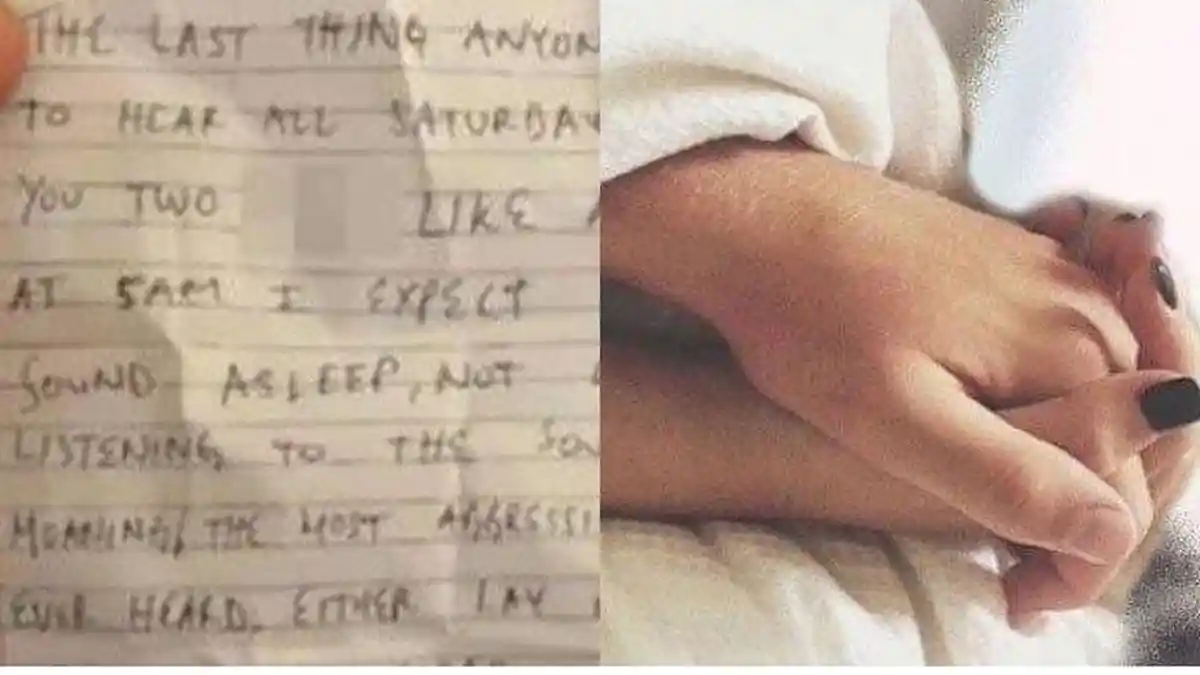 THE LAST THING ANYON
TO HEAR ALL SATURDAY
YOU TWO LIKE
AT 5AM I EXPECT
SOUND ASLEEP, NOT
LISTENING TO THE SOU
MOANING, THE MOST AGGRESSI
EVER HEARD. EITHER LAY